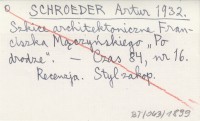 SCHROEDER Artur 1932.
Szkice architektoniczne Fran-
ciszka Mączyńskiego „Po
drodze". — Czas 84, nr 16.
Recenzja. Styl zakop.